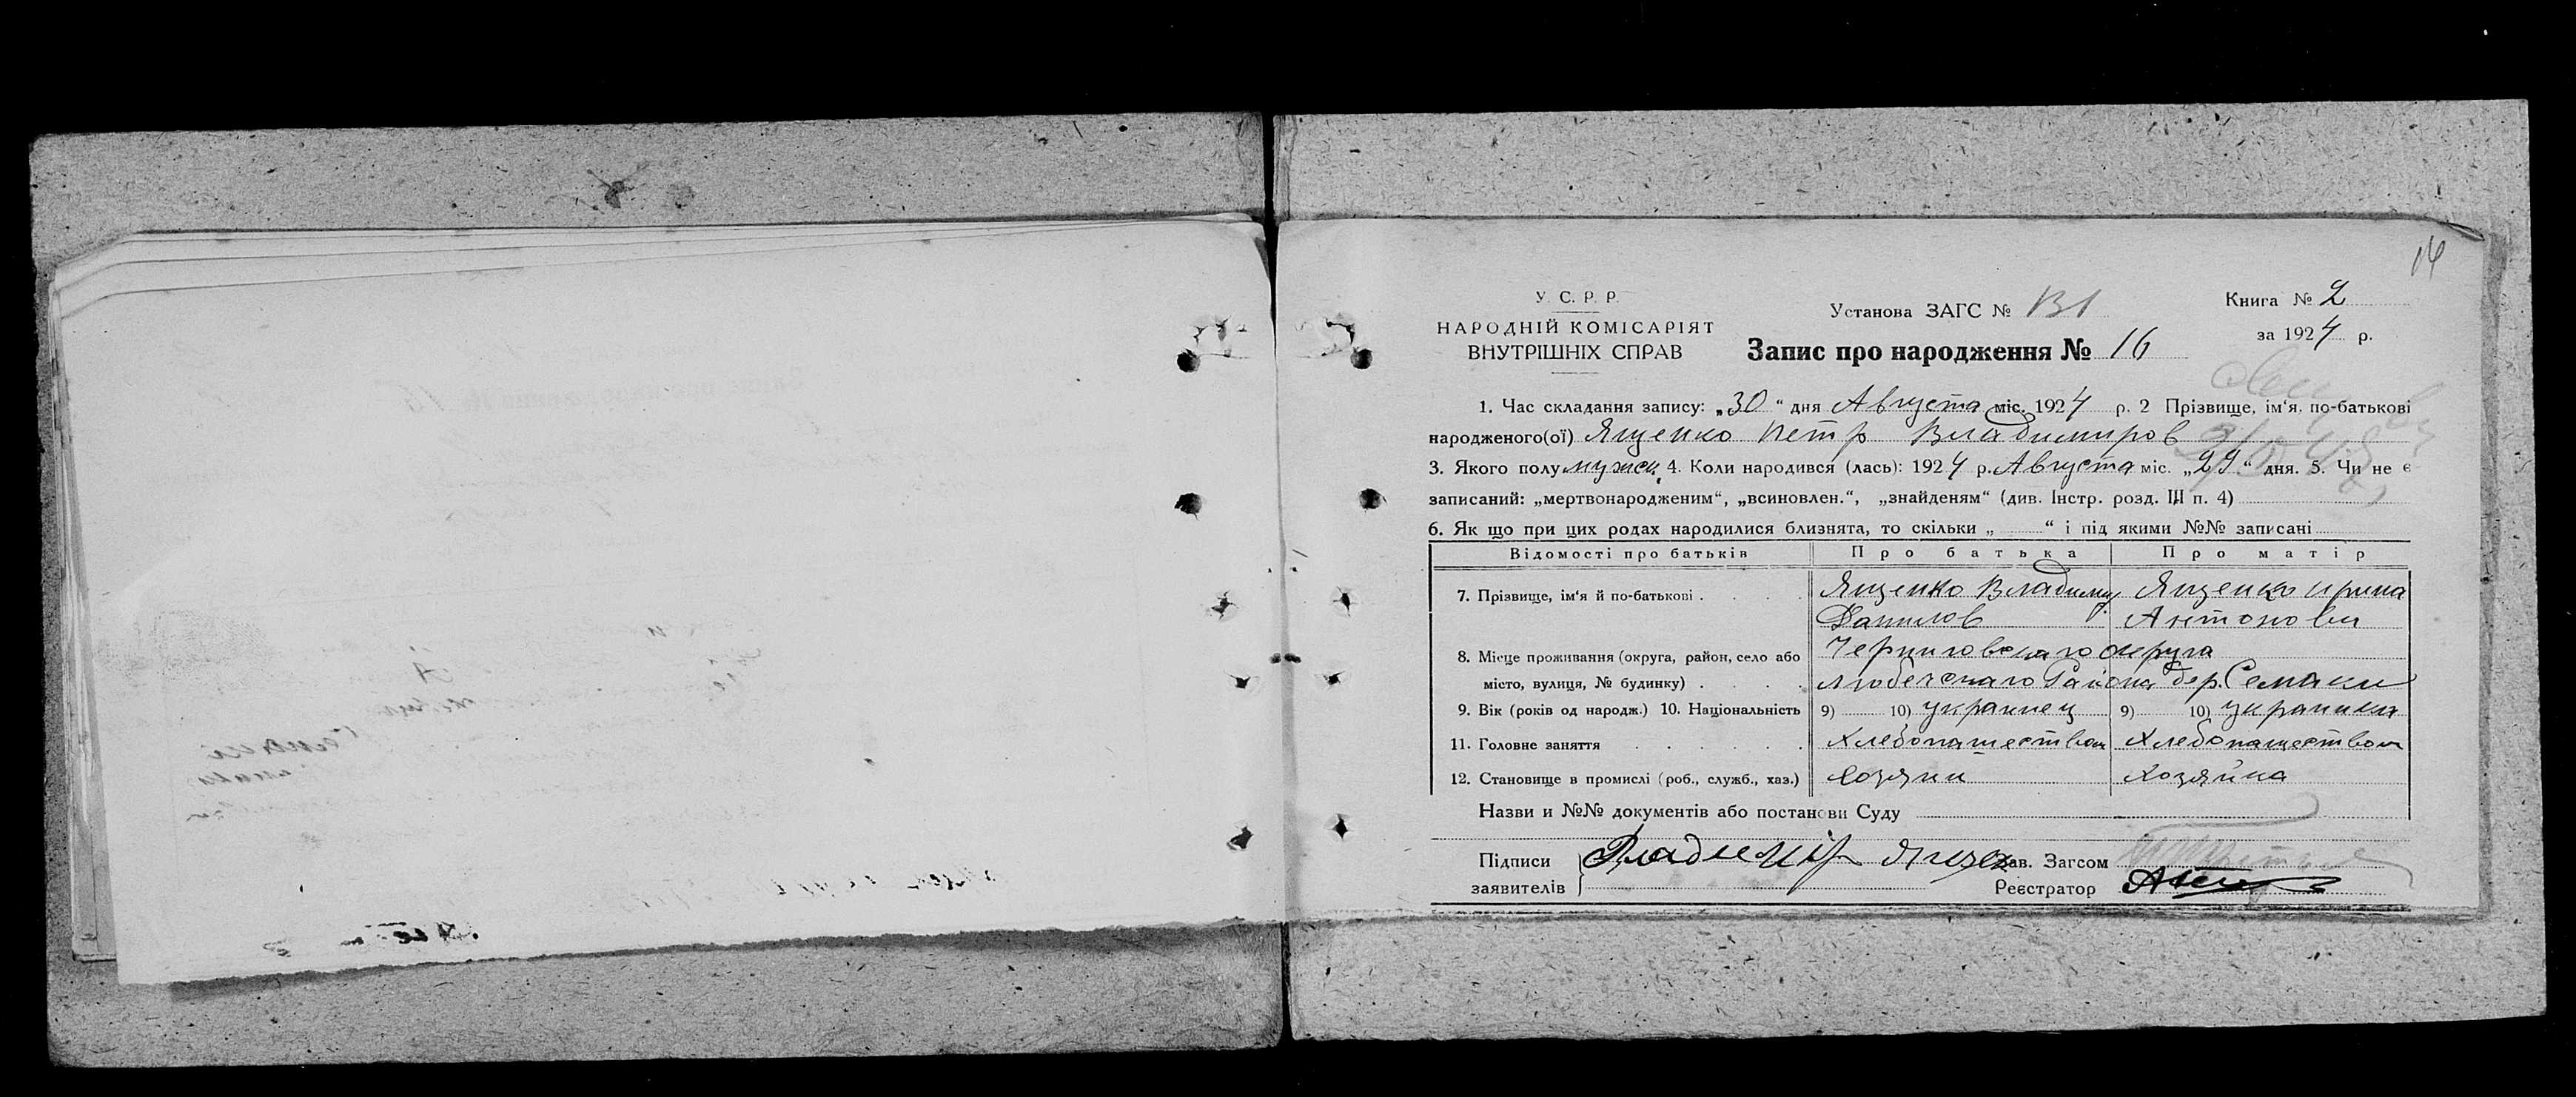 14
У. С. Р. Р.
НАРОДНІЙ КОМІСАРІЯТ
ВНУТРІШНІХ СПРАВ
Установа ЗАГС №
Книга № 2
за 1924 р.
Запис про народження № 16
1. Час складання запису: „30“ дня Августа міс. 1924 р. 2 Прізвище, ім'я, по-батькові
народженого(ої) Ященко Петр Владимиров
3. Якого полу мужск. 4. Коли народився (лась): 1924 р. Августа міс. „29“ дня. 5. Чи не є
записаний: „мертвонародженим“, „всиновлен.“, „знайденям“ (див. Інстр. розд. III п. 4)
6. Як що при цих родах народилися близнята, то скільки „ “ і під якими №№ записані
Відомості про батьків Про батька Про матір
7. Прізвище, ім'я й по-батькові Ященко Владимир Ященко Ирина
Данилов Антонови
8. Місце проживання (округа, район, село або Черниговского округа
місто, вулиця, № будинку) Любечскаго Района дер. Семаки
9. Вік (років од народж.) 10. Національність 9) 10) украинец 9) 10) украинка
11. Головне заняття Хлебопашеством Хлебопашеством
12. Становище в промислі (роб., служб., хаз.) Хозяин Хозяйка
Назви и №№ документів або постанови Суду
Підписи Владимир Ященко Зав. Загсом
заявителів Реєстратор